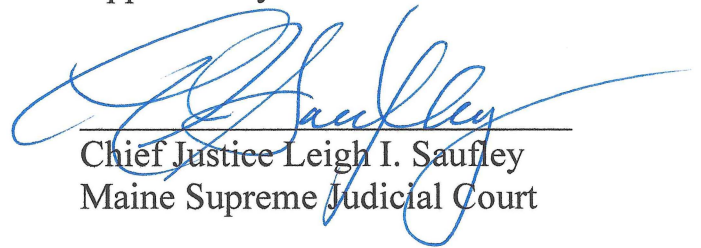 Saufley
Chief Justice Leigh I. Saufley
Maine Supreme Judicial Court